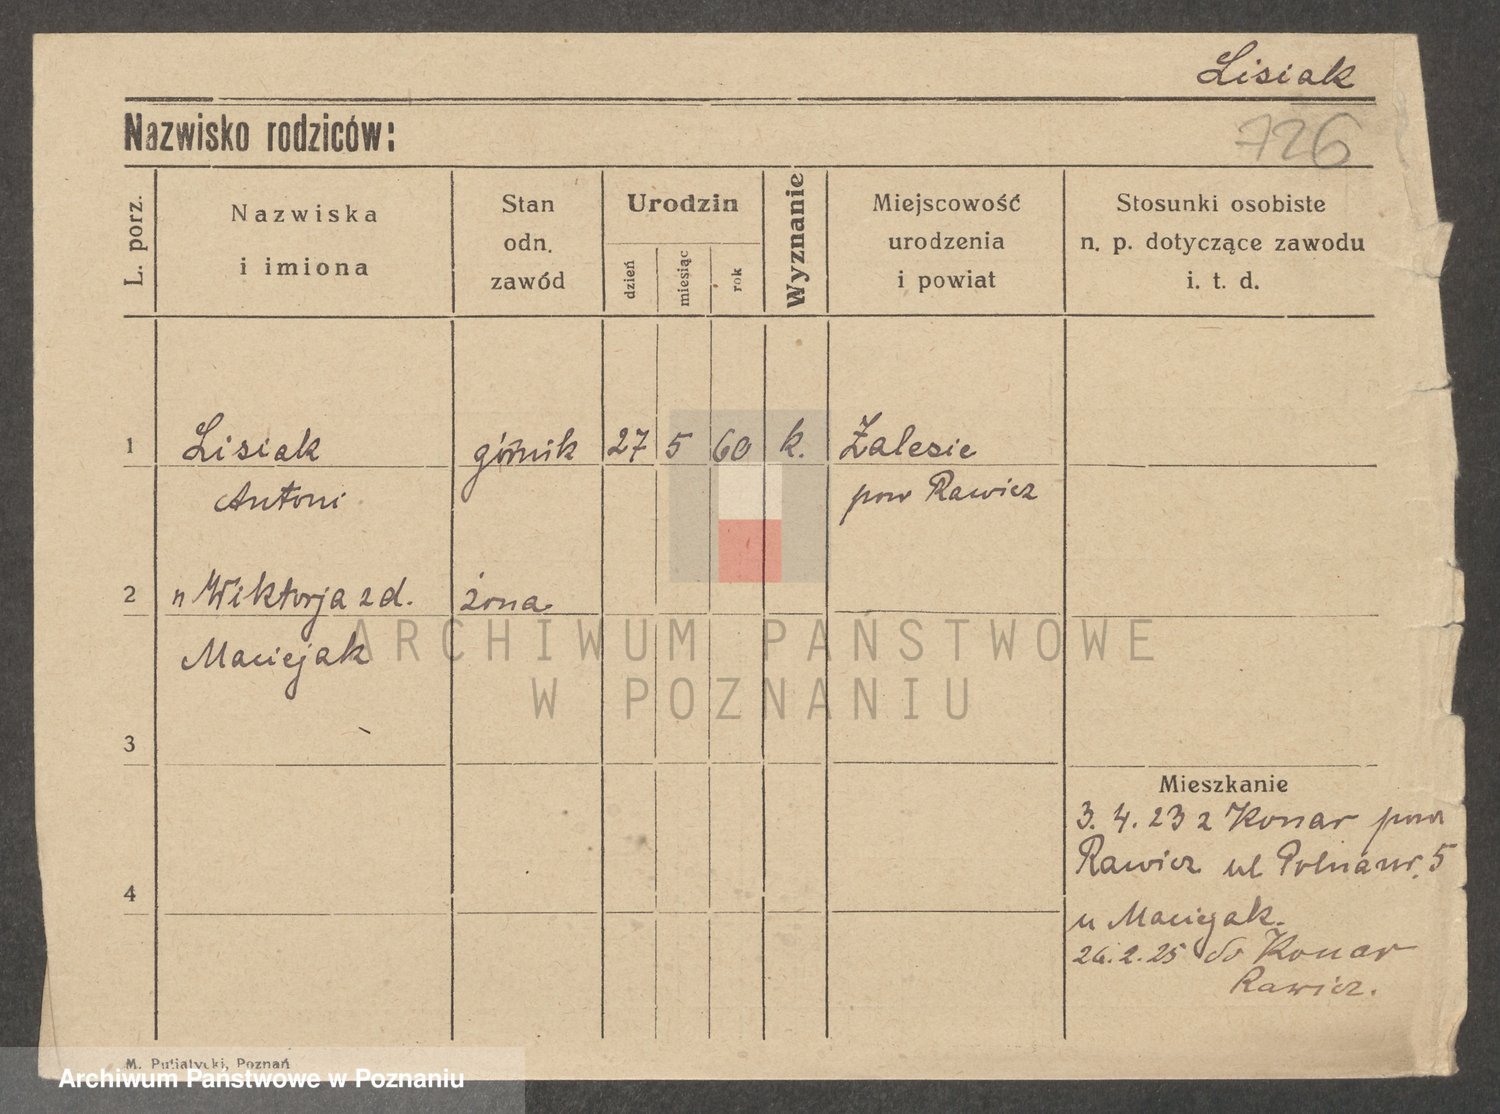 Lisiak
Nazwisko rodziców:
726
L. porz.
Nazwiska
i imiona
Stan
odn.
zawód
Urodzin
dzień
miesiąc
rok
Wyznanie
Miejscowość
urodzenia
i powiat
Stosunki osobiste
n. p. dotyczące zawodu
i. t. d.
1
Lisiak
górnik
27
5
60
k.
Zalesie
Antoni
pow Rawicz
2
" Wiktorja zd.
żona
Maciejak
ARCHIWUM PAŃSTWOWE
W POZNANIU
3
Mieszkanie
3. 4. 23 z Konar pow
Rawicz ul Polna nr. 5
4
u Maciejak.
26. 2. 25 do Konar
Rawicz.
M. Putiatycki, Poznań
Archiwum Państwowe w Poznaniu